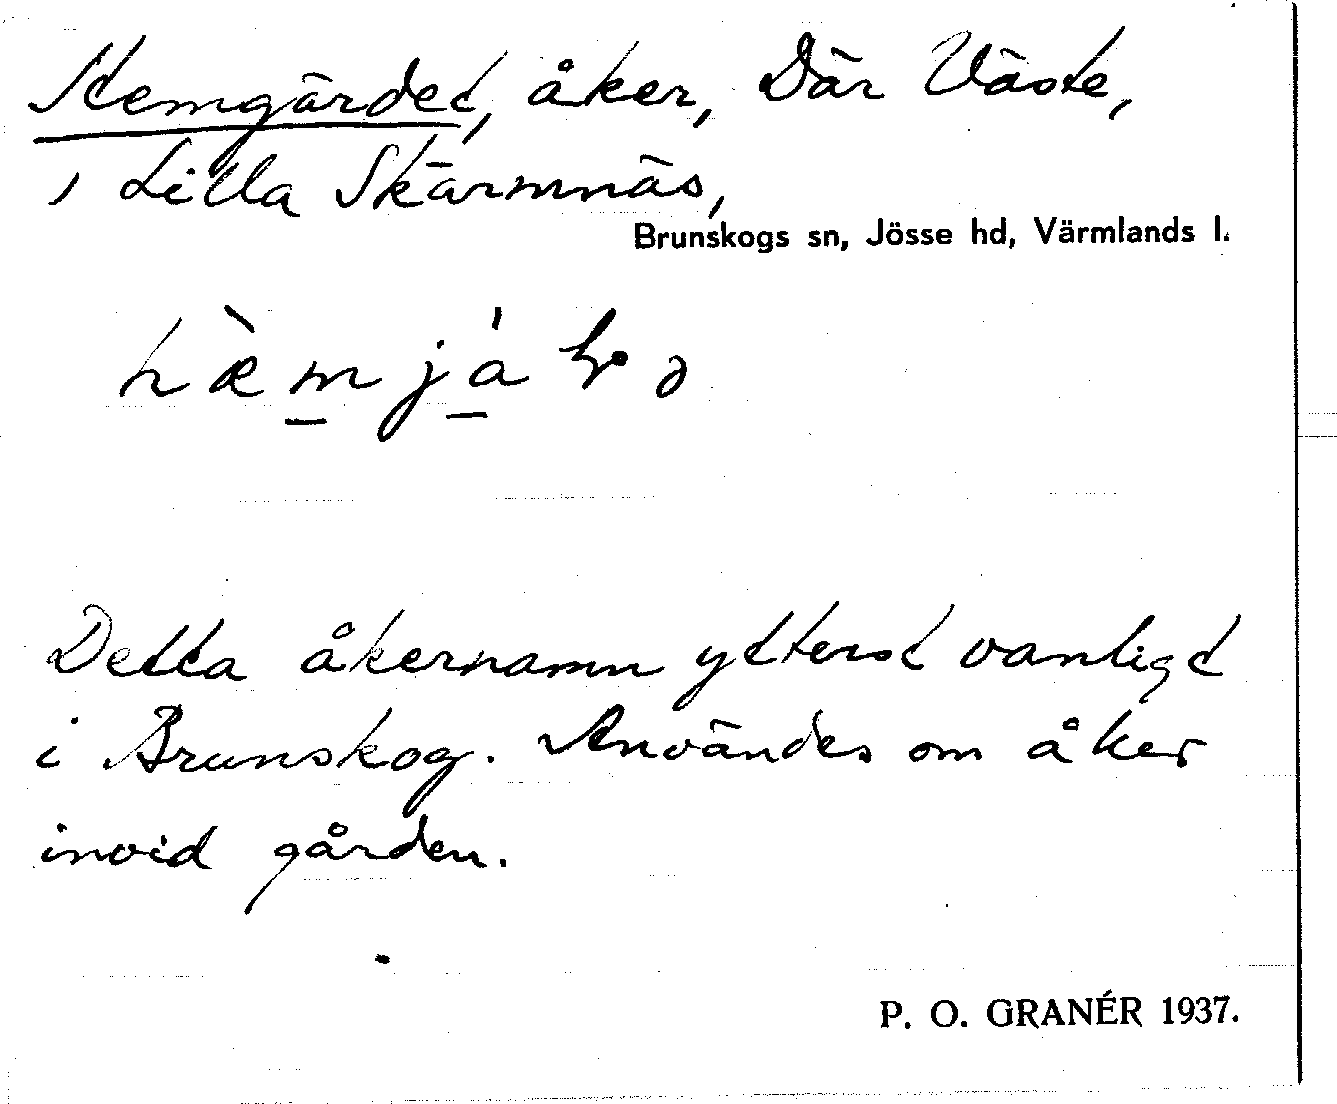 Hemgärdet, åker, Där Väste,
i Lilla Skärmnäs,
Brunskogs sn, Jösse hd, Värmlands l.
Detta åkernamn ytterst vanligt
i Brunskog. Användes om åker
invid gården.
P. O. GRANÉR 1937.